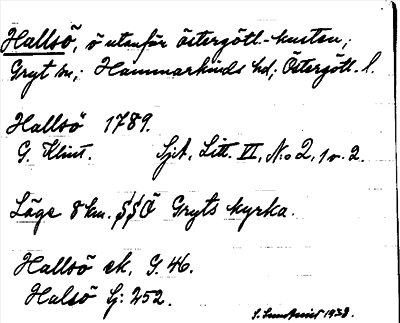 Hallsö, ö utanför Östergötl.-kusten;
Gryt sn; Hammarkinds hd; Östergötl. l.
Hallsö 1789.
G. Klint. Sjk, Litt. II, N:o 2, 1 v. 2.
Läge 8 km. SSÖ Gryts kyrka.
Hallsö ek. G. 46.
Halsö Gj: 252.
1938.